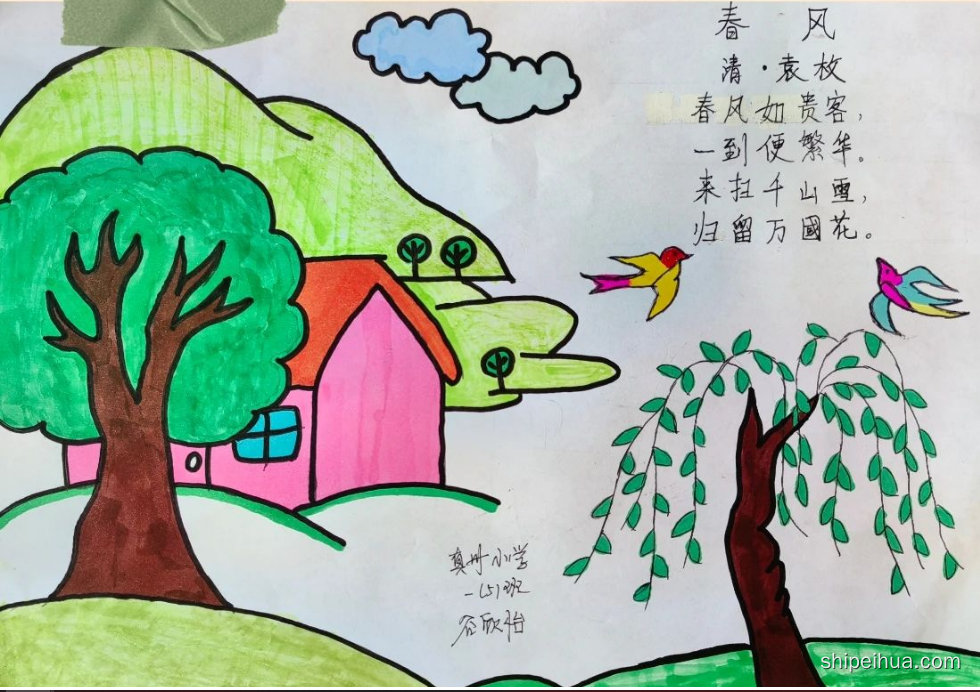 春 风
清·袁枚
春风如贵客，
一到便繁华。
来扫千山雪，
归留万國花。
真州小学
一(5)班
谷欣怡
shipeihua.com